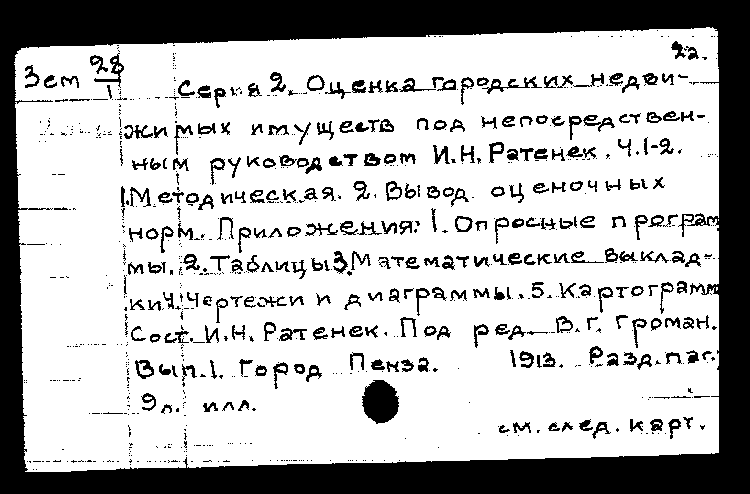 22.
Зет 28
1
Серия 2. Оценка городских недви-
жимых имуществ под непосредствен-
ным руководством И.Н. Ратенек. Ч.1-2.
1.Методическая. 2. Вывод оценочных
норм. Приложения: 1. Опросные програм
мы. 2. Таблицы 3. Математические выклад-
ки 4. Чертежи и диаграммы. 5. Картограмм
Сост. И.Н. Ратенек. Под ред. В.Г. Громан.
Вып. 1. Город Пенза. 1913. Разд. паг.
9л. илл.
см. след. карт.